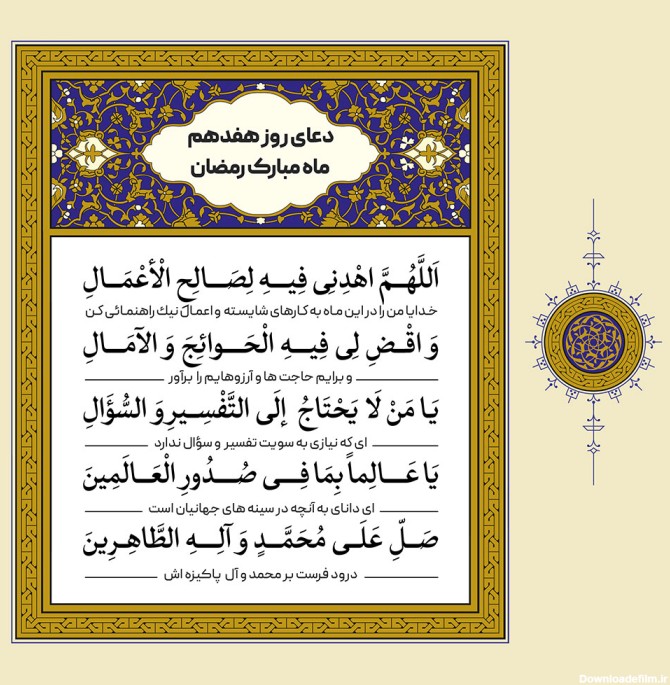 دعای روز هفدهم
ماه مبارک رمضان
اَللَّهُـمَّ اهْدِنِی فِیـهِ لِصَـالِحِ الْأَعْمَـالِ
خدایا من را در این ماه به کارهای شایسته و اعمال نیك راهنمائی کن
وَ اقْـضِ لِی فِیـهِ الْحَـوائِجَ وَ الآمَـالِ
و برایم حاجت ها و آرزوهایم را برآور
یَـا مَنْ لَا یَحْتَاجُ إلَی التَّفْسِـیرِ وَ السُّؤَالِ
ای که نیازی به سویت تفسیر و سؤال ندارد
یَا عَـالِماً بِمَا فِـی صُـدُورِ الْعَـالَمِینَ
ای دانای به آنچه در سینه های جهانیان است
صَـلِّ عَلَـی مُحَمَّـدٍ وَ آلِـهِ الطَّاهِـرِینَ
درود فرست بر محمد و آل پاکیزه اش
Downloadefilm.ir